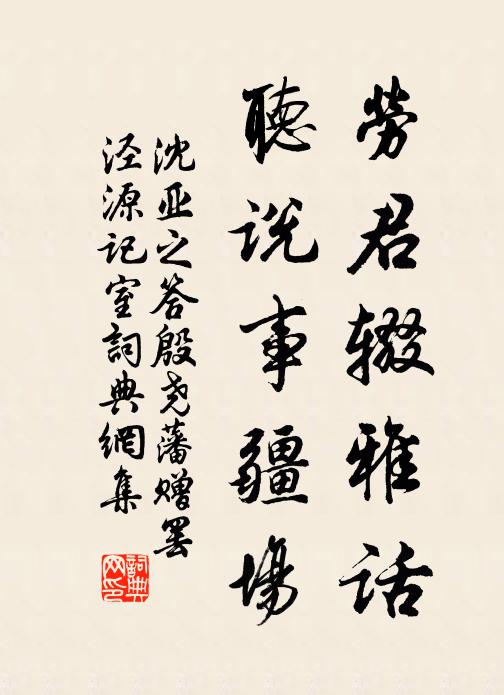 勞君辍雅话
聽说事疆場
沈亚之答殷尧藩赠罢
泾源记室詞典網集
詞典网印